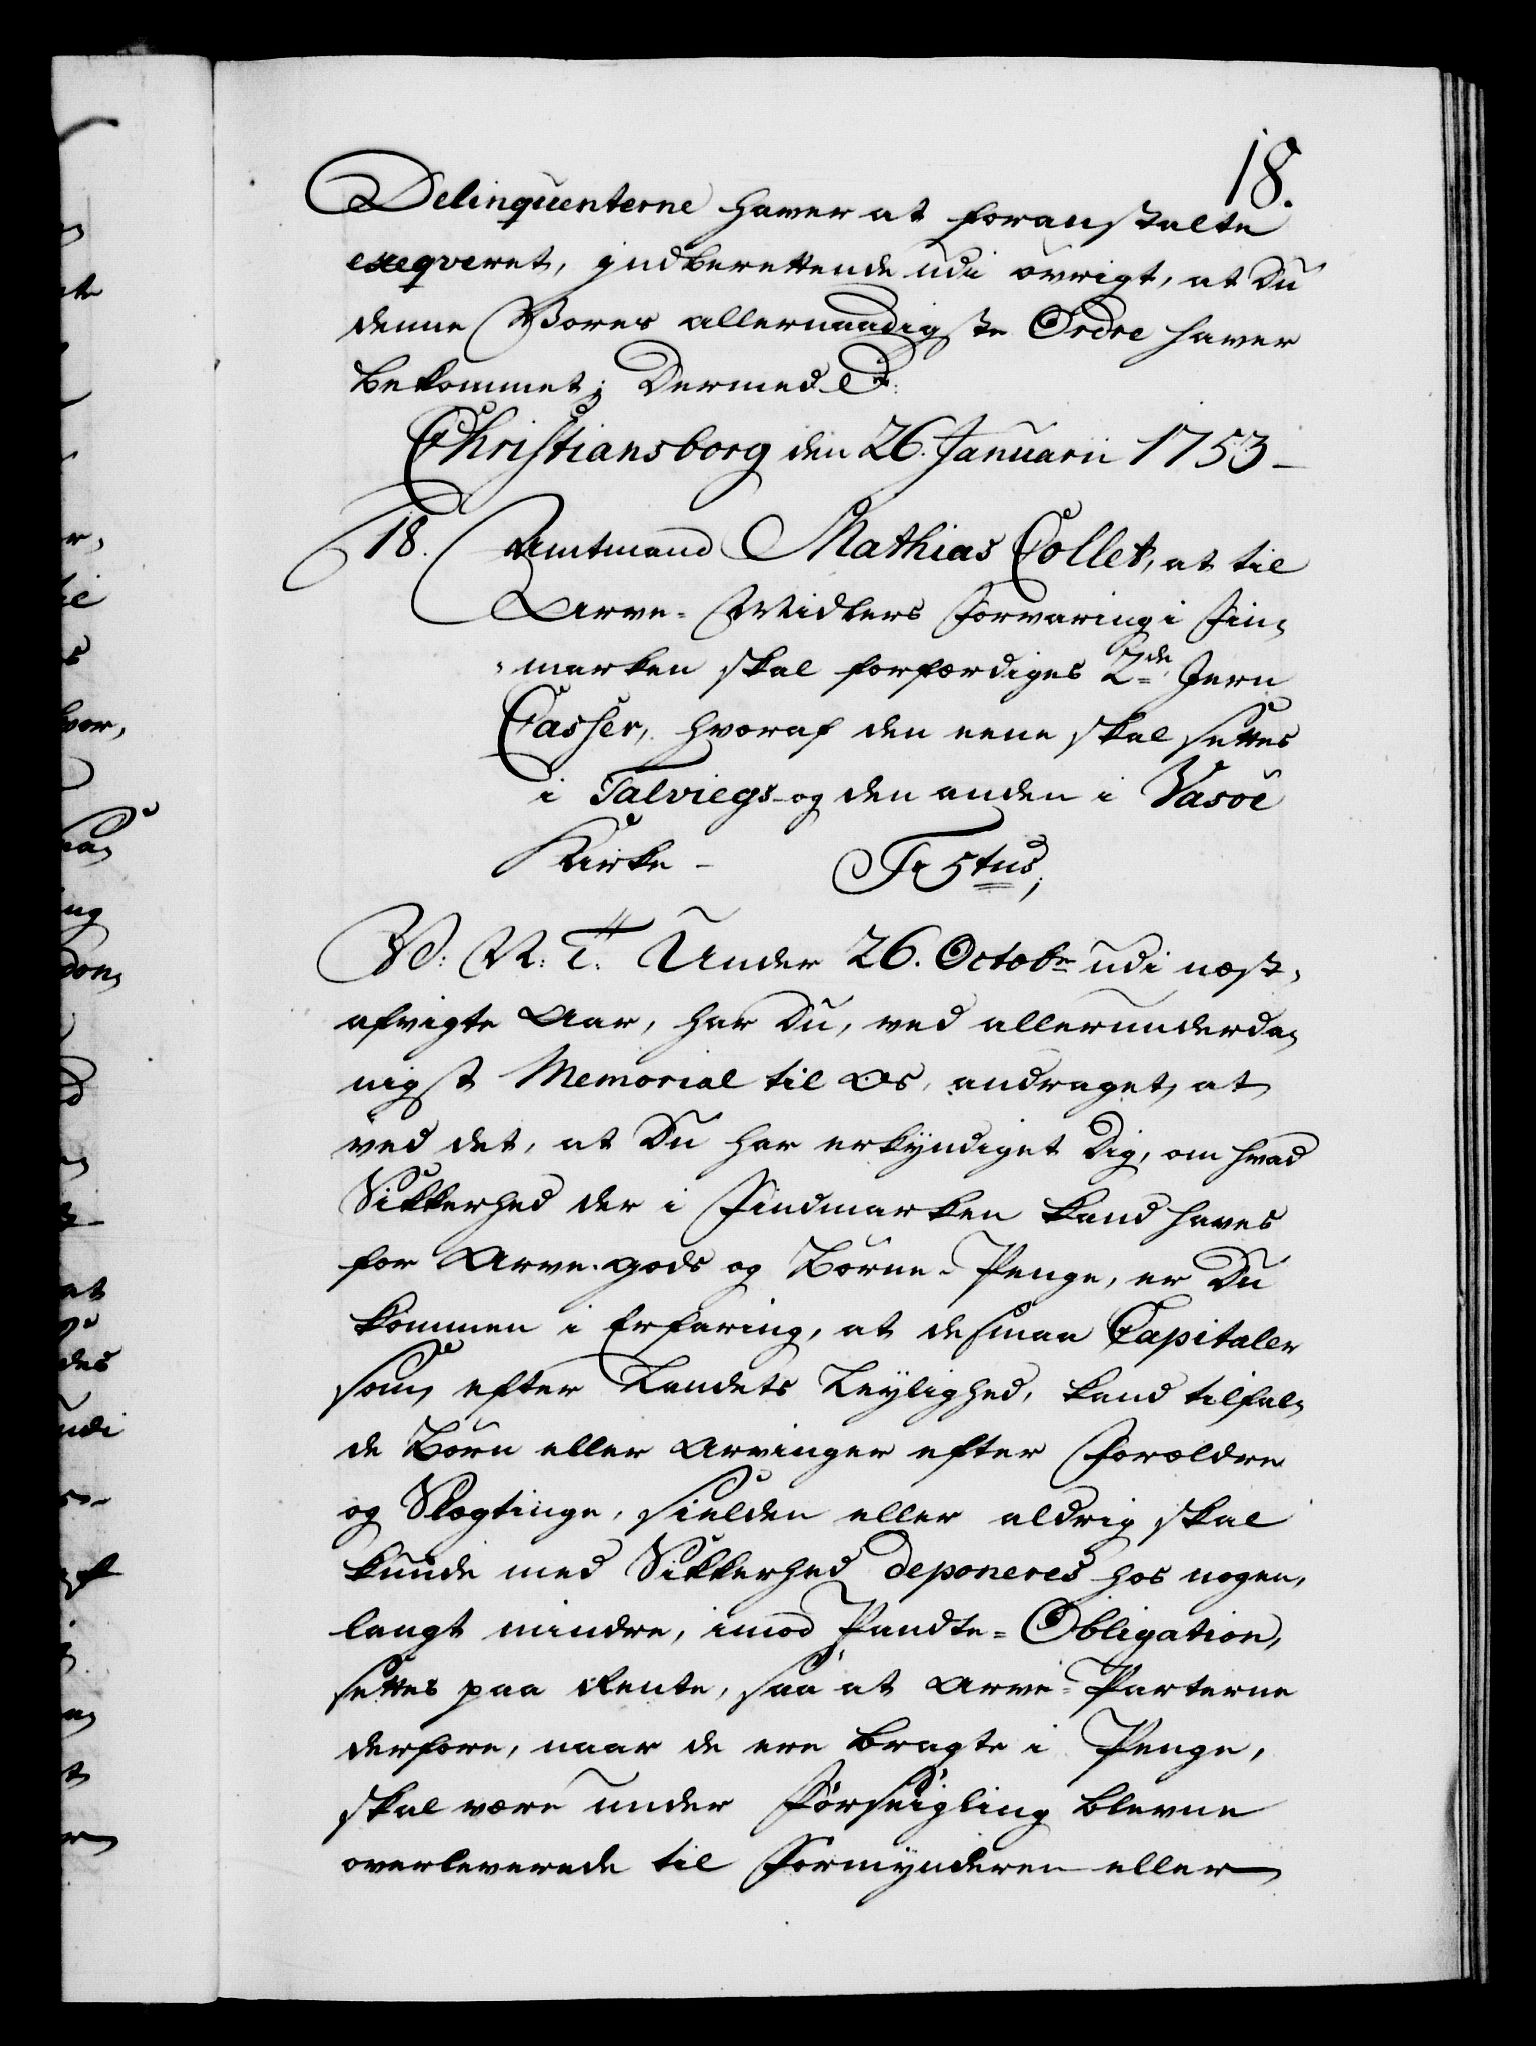 18.
Delinquenterne haver at foranstalte
exeqveret, jndberettende udi øvrigt, at Du
denne Vores allernaadigste Ordre haver
bekommet; Dermed &c:
Christiansborg den 26. Januarii 1753 –
18. Amtmand Mathias Collet, at til
Arve-Midlers Forvaring i Fin-
-marken skal forfærdiges 2de Jern
Casser, hvoraf den eene skal settes
i Talviegs og den anden i Vasöe
Kirke – Fr 5tus;
V: N: T: Under 26. Octobr udi næst-
afvigte Aar, har Du, ved allerunderda-
nigst Memorial til Os, andraget, at
ved det, at Du har erkyndiget Dig, om hvad
Sikkerhed der i Findmarken kand haves
for Arve-gods og Börne-Penge, er Du
kommen i Erfaring, at de smaa Capitaler
som, efter Landets Leylighed, kand tilfal-
de Börn eller Arvinger efter Forældre
og Slægtinge, sielden eller aldrig skal
kunde med Sikkerhed deponeres hos nogen,
langt mindre, imod Pandte-Obligation,
settes paa Rente, saa at Arve-Parterne
derfore, naar de ere bragte i Penge,
skal være under Forseigling blevne
overleverede til Formynderen eller